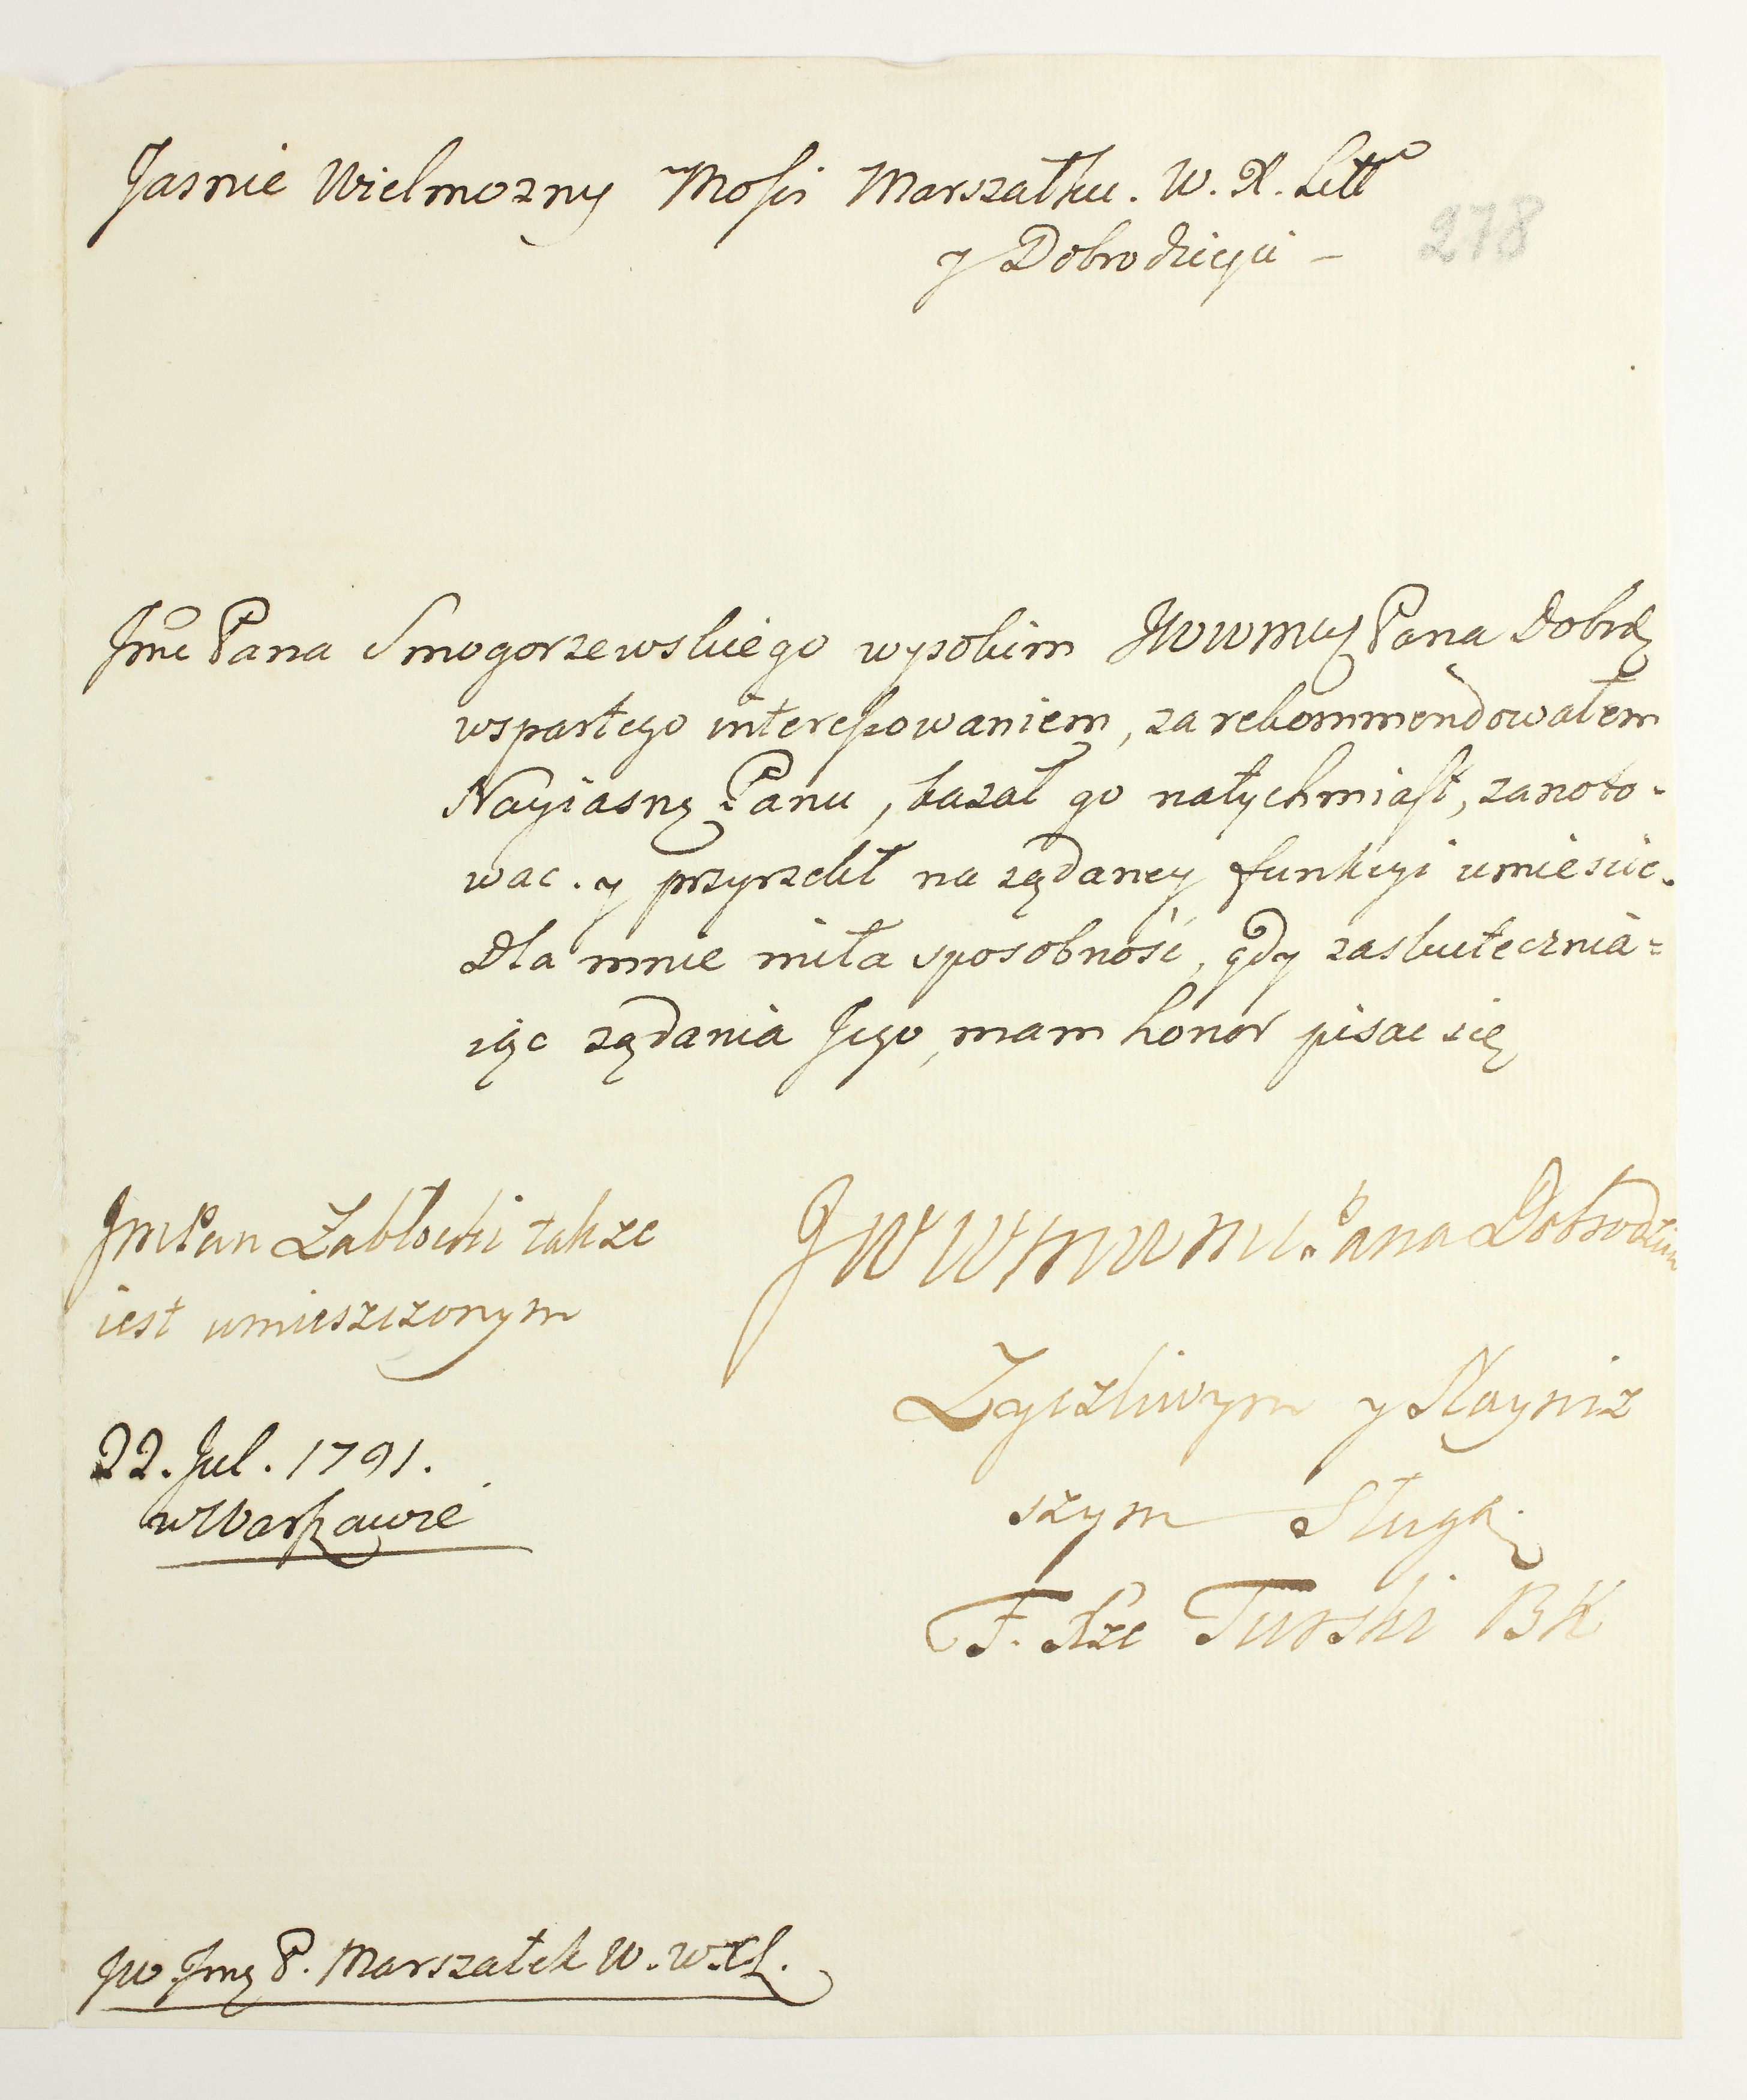 Jasnie Wielmozny Mosci Marszałku. W. X. Litt
y Dobrodzieju –
278
Jmć Pana Smogorzewskiego wysokim JWWMCy Pana Dobrd
wspartego interessowaniem, zarekommendowałem
Nayiasnę Panu, kazał go natychmiast, zanoto-
wac. y przyrzekł na ządaney funkcyi umiescic.
Dla mnie miła sposobność, gdy zaskutecznia=
iąc ządania Jego, mam honor pisac się
JmPan Zabłocki takze
iest umieszczonym
JWWM Pana Dobrodzieia
Zyczliwym y Nayniz
szym Sługą
22. Jul. 1791.
w Warszawie
F. Xże Turski BK
JW Jmę P. Marszałek W. W. X L.